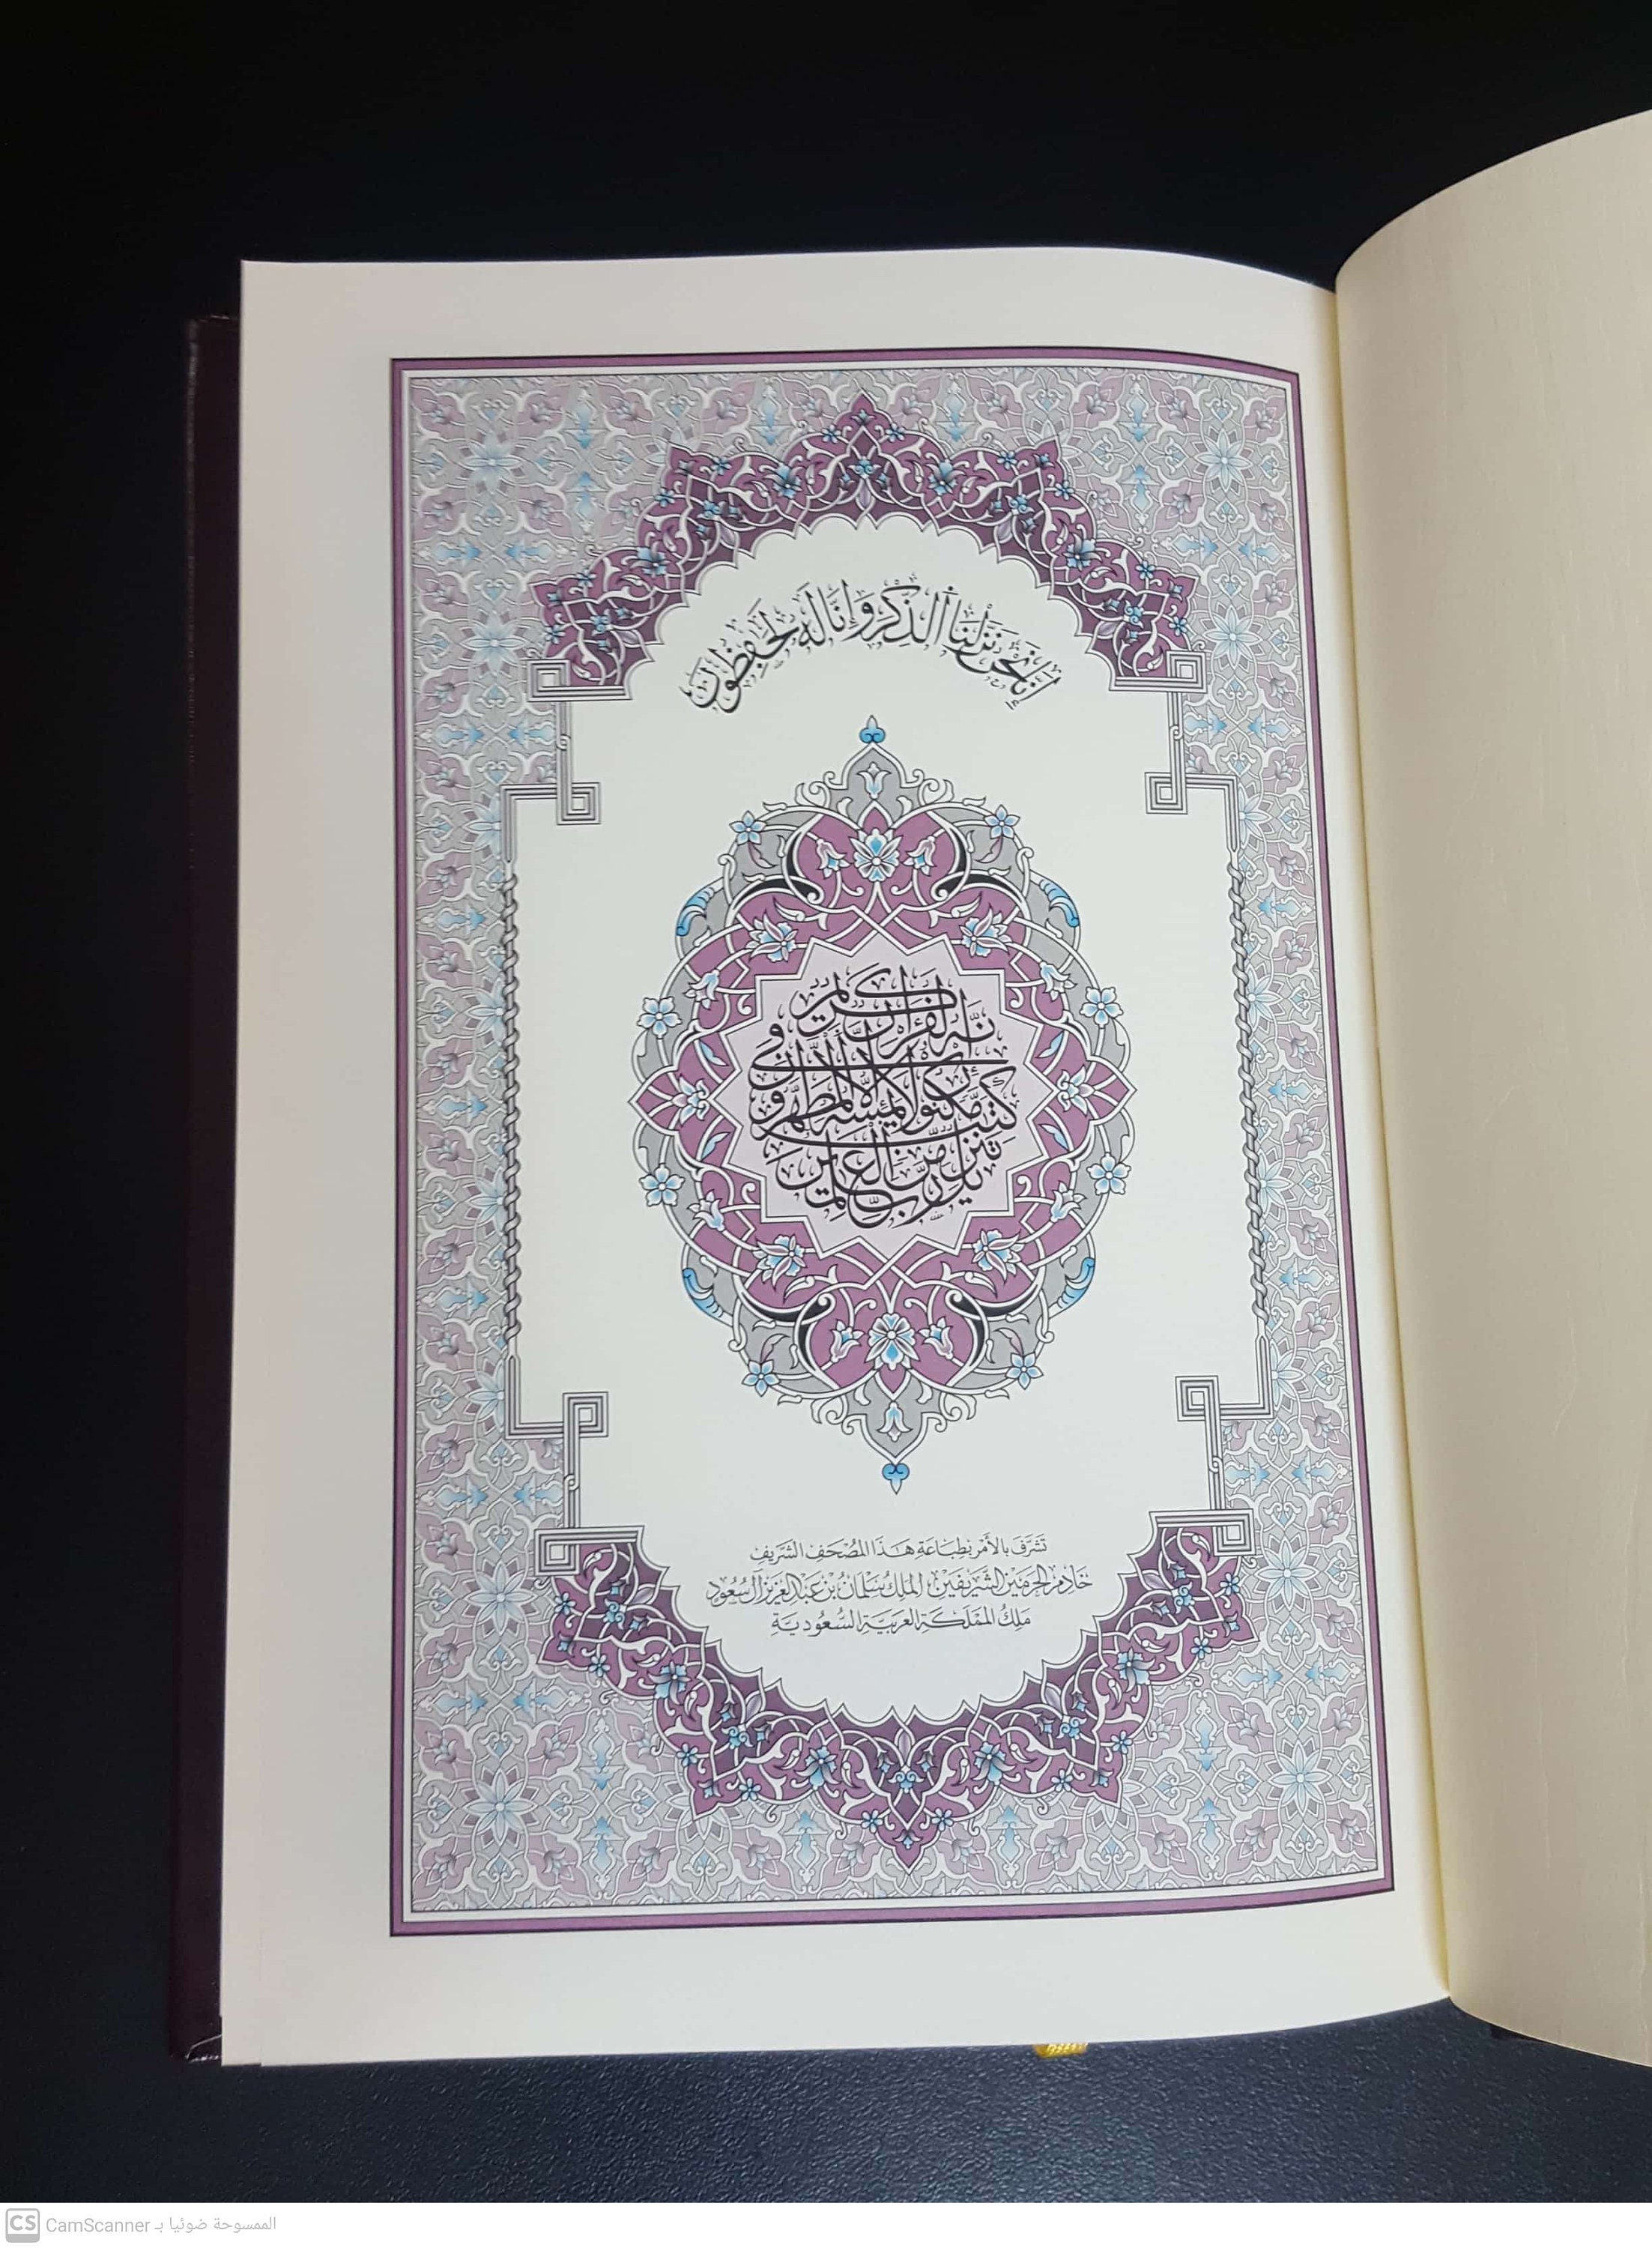 إنا نحن نزلنا الذكر وإنا له لحفظون
إنه لقرءان كريم
في كتب مكنون لا يمسه إلا المطهرون
تنزيل من رب العلمين
تَشَرَّفَ بِالأَمْرِ بِطِبَاعَةِ هَذَا المُصْحَفِ الشَّرِيفِ
خَادِمُ الحَرَمَيْنِ الشَّرِيفَيْنِ المَلِكُ سَلْمَانُ بْنُ عَبْدِ العَزِيزِ آل سُعُود
مَلِكُ المَمْلَكَةِ العَرَبِيَّةِ السُّعُودِيَّةِ
CS CamScanner الممسوحة ضوئيا بـ